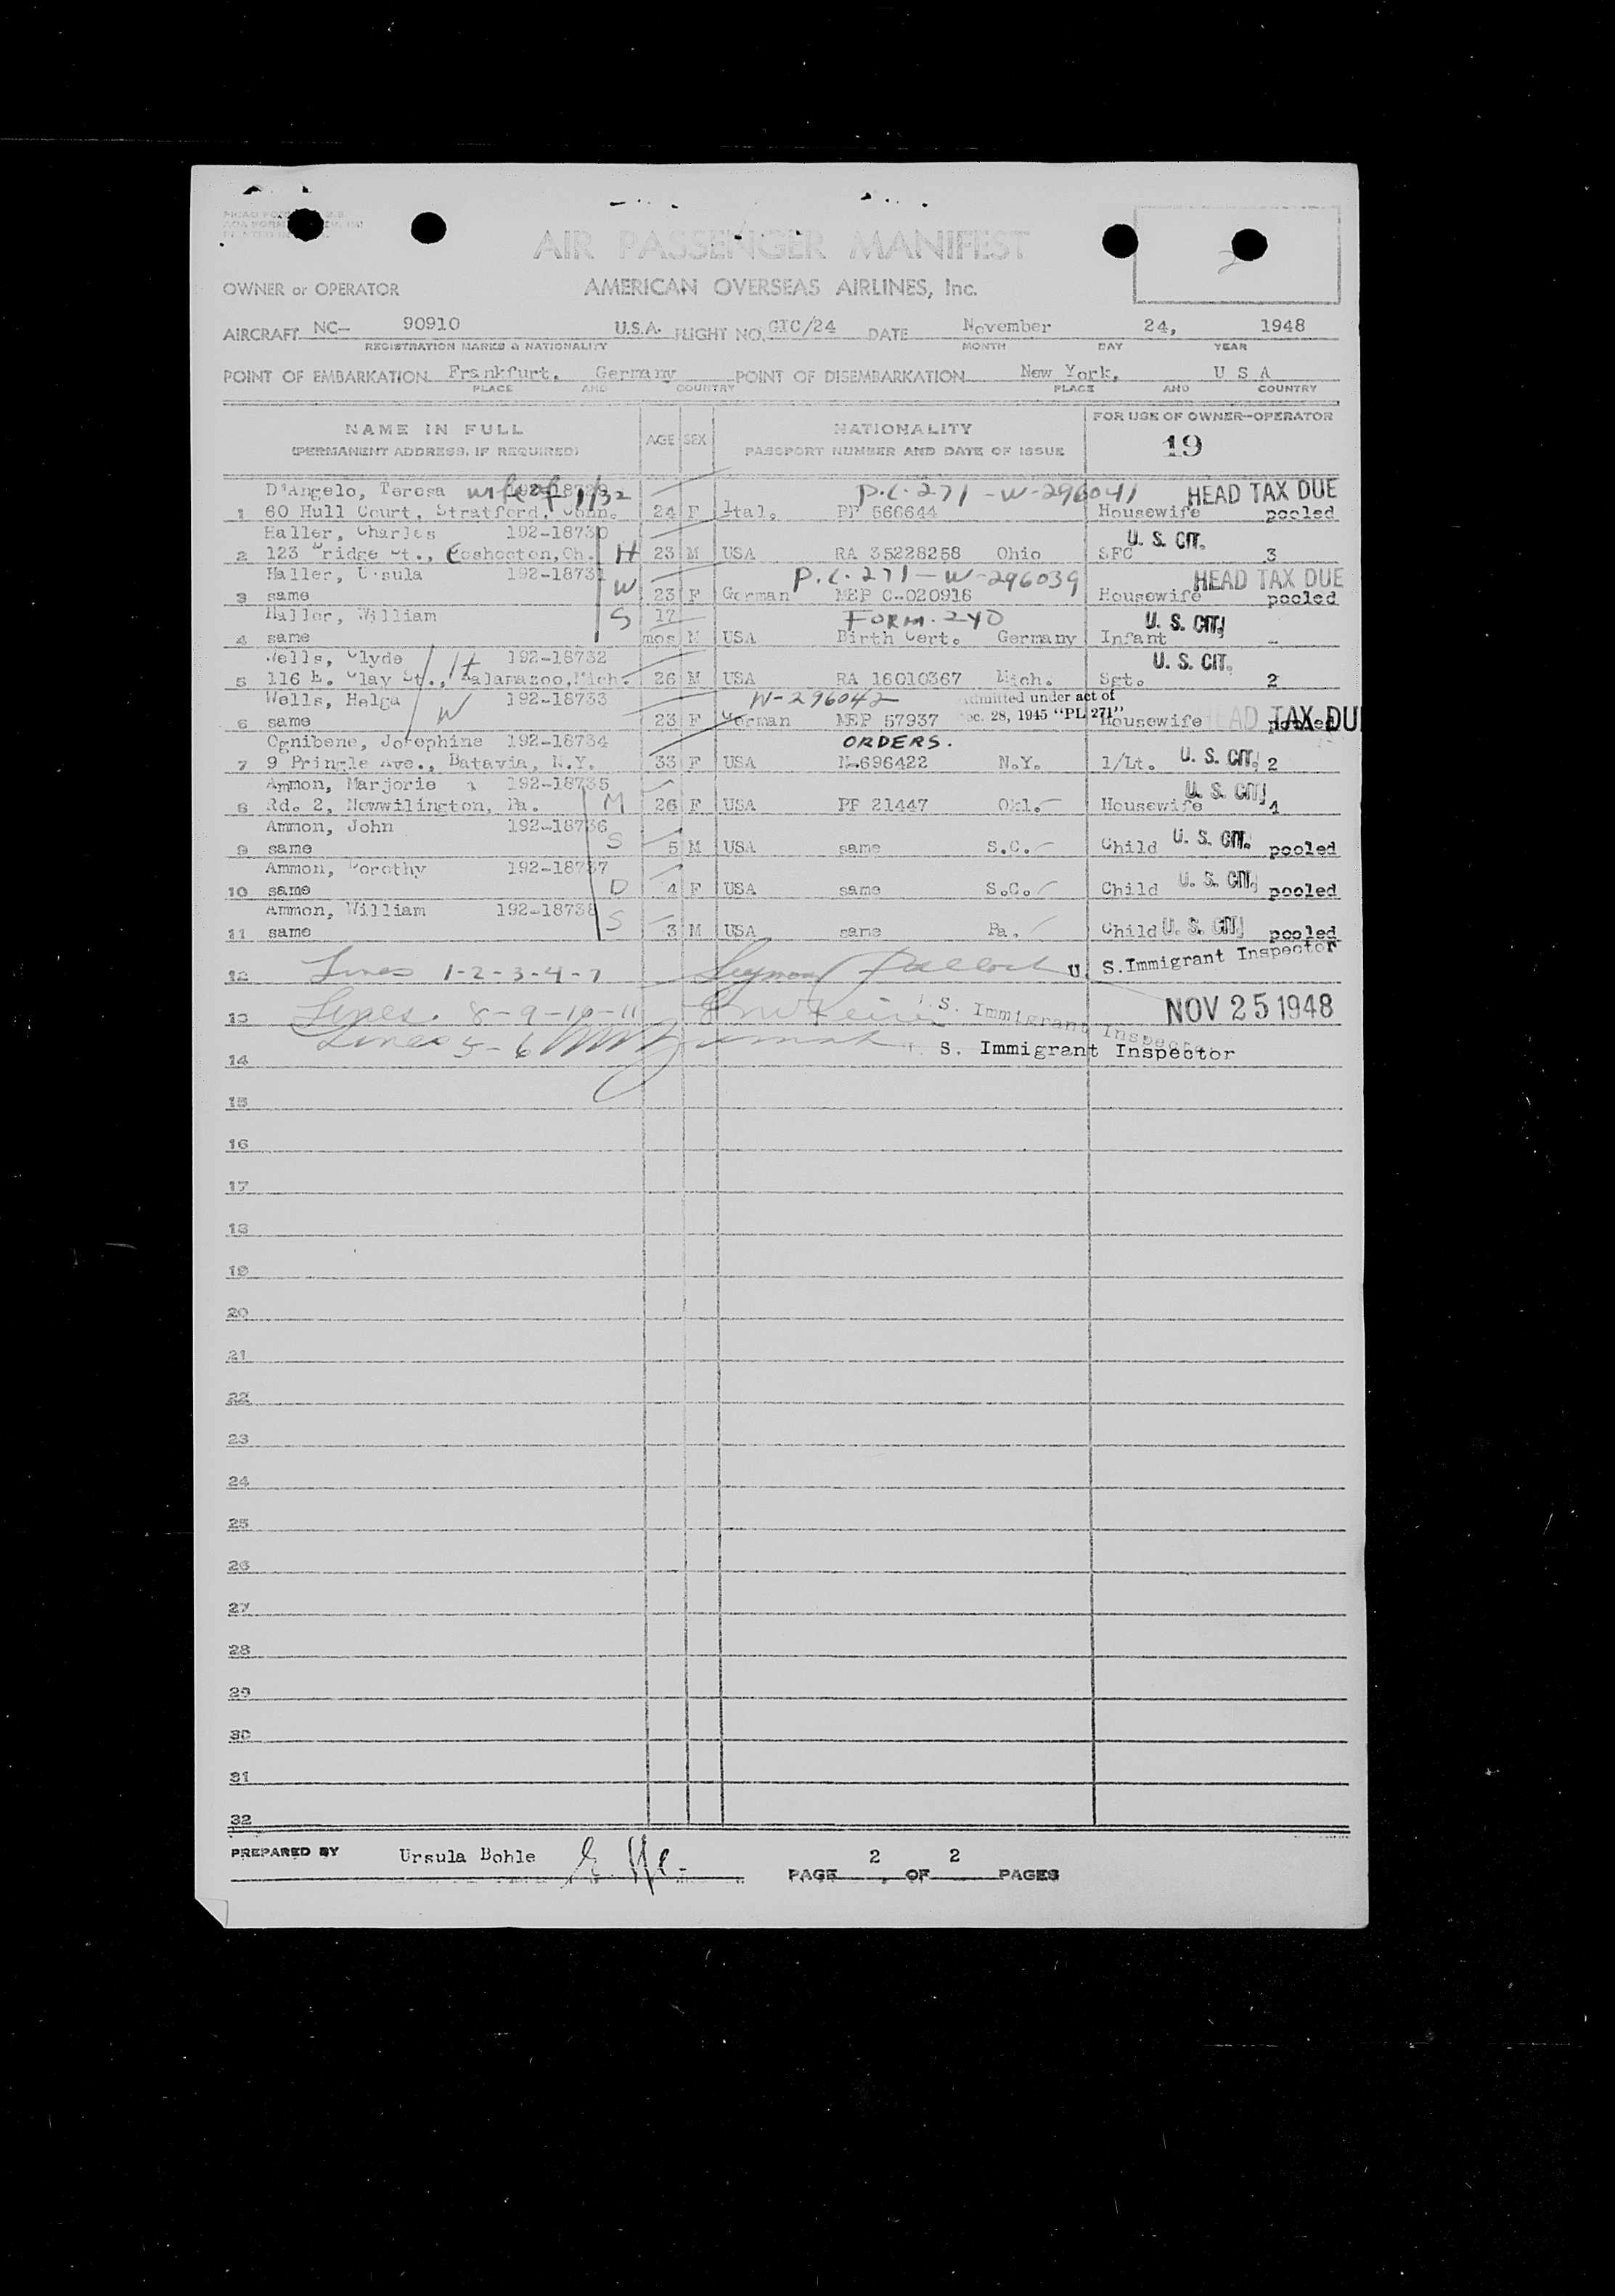 AIR PASSENGER MANIFEST
OWNER or OPERATOR AMERICAN OVERSEAS AIRLINES, Inc.
AIRCRAFT NC- 90910 U.S.A. FLIGHT NO. GTC/24 DATE November 24, 1948
REGISTRATION MARKS & NATIONALITY MONTH DAY YEAR
POINT OF EMBARKATION Frankfurt, Germany POINT OF DISEMBARKATION New York, U S A
PLACE AND COUNTRY PLACE AND COUNTRY
NAME IN FULL AGE SEX NATIONALITY FOR USE OF OWNER-OPERATOR
(PERMANENT ADDRESS, IF REQUIRED) PASSPORT NUMBER AND DATE OF ISSUE 19
D'Angelo, Teresa wife of 1/32 P.L. 271 - W-296041 HEAD TAX DUE
1 60 Hull Court, Stratford, Conn. 24 F Ital. PP 566644 Housewife pooled
Haller, Charles 192-18730 U. S. CIT.
2 123 Bridge St., Coshocton, Oh. H 23 M USA RA 35228258 Ohio SFC 3
Haller, Ursula 192-18731 P.L. 271 - W-296039 HEAD TAX DUE
3 same W 23 F German MEP C-020918 Housewife pooled
Haller, William S 17 FORM. 240 U. S. CIT.
4 same mos M USA Birth Cert. Germany Infant -
Wells, Clyde H 192-18732 U. S. CIT.
5 116 E. Clay St., Kalamazoo, Mich. 26 M USA RA 16010367 Mich. Sgt. 2
Wells, Helga W 192-18733 W-296042 Admitted under act of
6 same 23 F German MEP 57937 Dec. 28, 1945 "PL 271" Housewife HEAD TAX DU pooled
Ognibene, Josephine 192-18734 ORDERS.
7 9 Pringle Ave., Batavia, N.Y. 33 F USA N-696422 N.Y. 1/Lt. U. S. CIT. 2
Ammon, Marjorie 192-18735 U. S. CIT.
8 Rd. 2, Newwilington, Pa. M 26 F USA PP 21447 Okl. Housewife 4
Ammon, John 192-18736
9 same S 5 M USA same S.C. Child U. S. CIT. pooled
Ammon, Dorothy 192-18737
10 same D 4 F USA same S.C. Child U. S. CIT. pooled
Ammon, William 192-18738
11 same S 3 M USA same Pa. Child U. S. CIT. pooled
12 Lines 1-2-3-4-7 Seymour Pollock U. S. Immigrant Inspector
13 Lines. 8-9-10-11 U. S. Immigrant Inspector NOV 25 1948
14 Lines 5-6 U. S. Immigrant Inspector
15
16
17
18
19
20
21
22
23
24
25
26
27
28
29
30
31
32
PREPARED BY Ursula Bohle PAGE 2 OF 2 PAGES